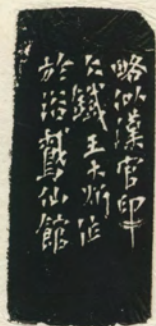 略似漢官印
仌鐵王大炘作
於浴鵞仙館